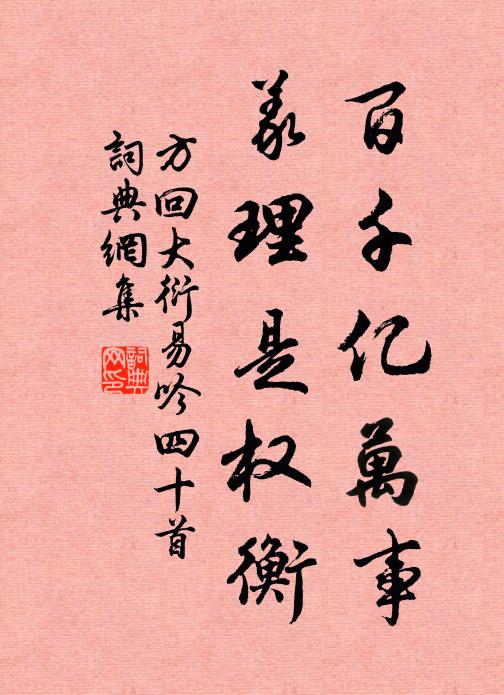 百千亿萬事
義理是权衡
方回大衍易吟四十首
詞典網集
詞典网印